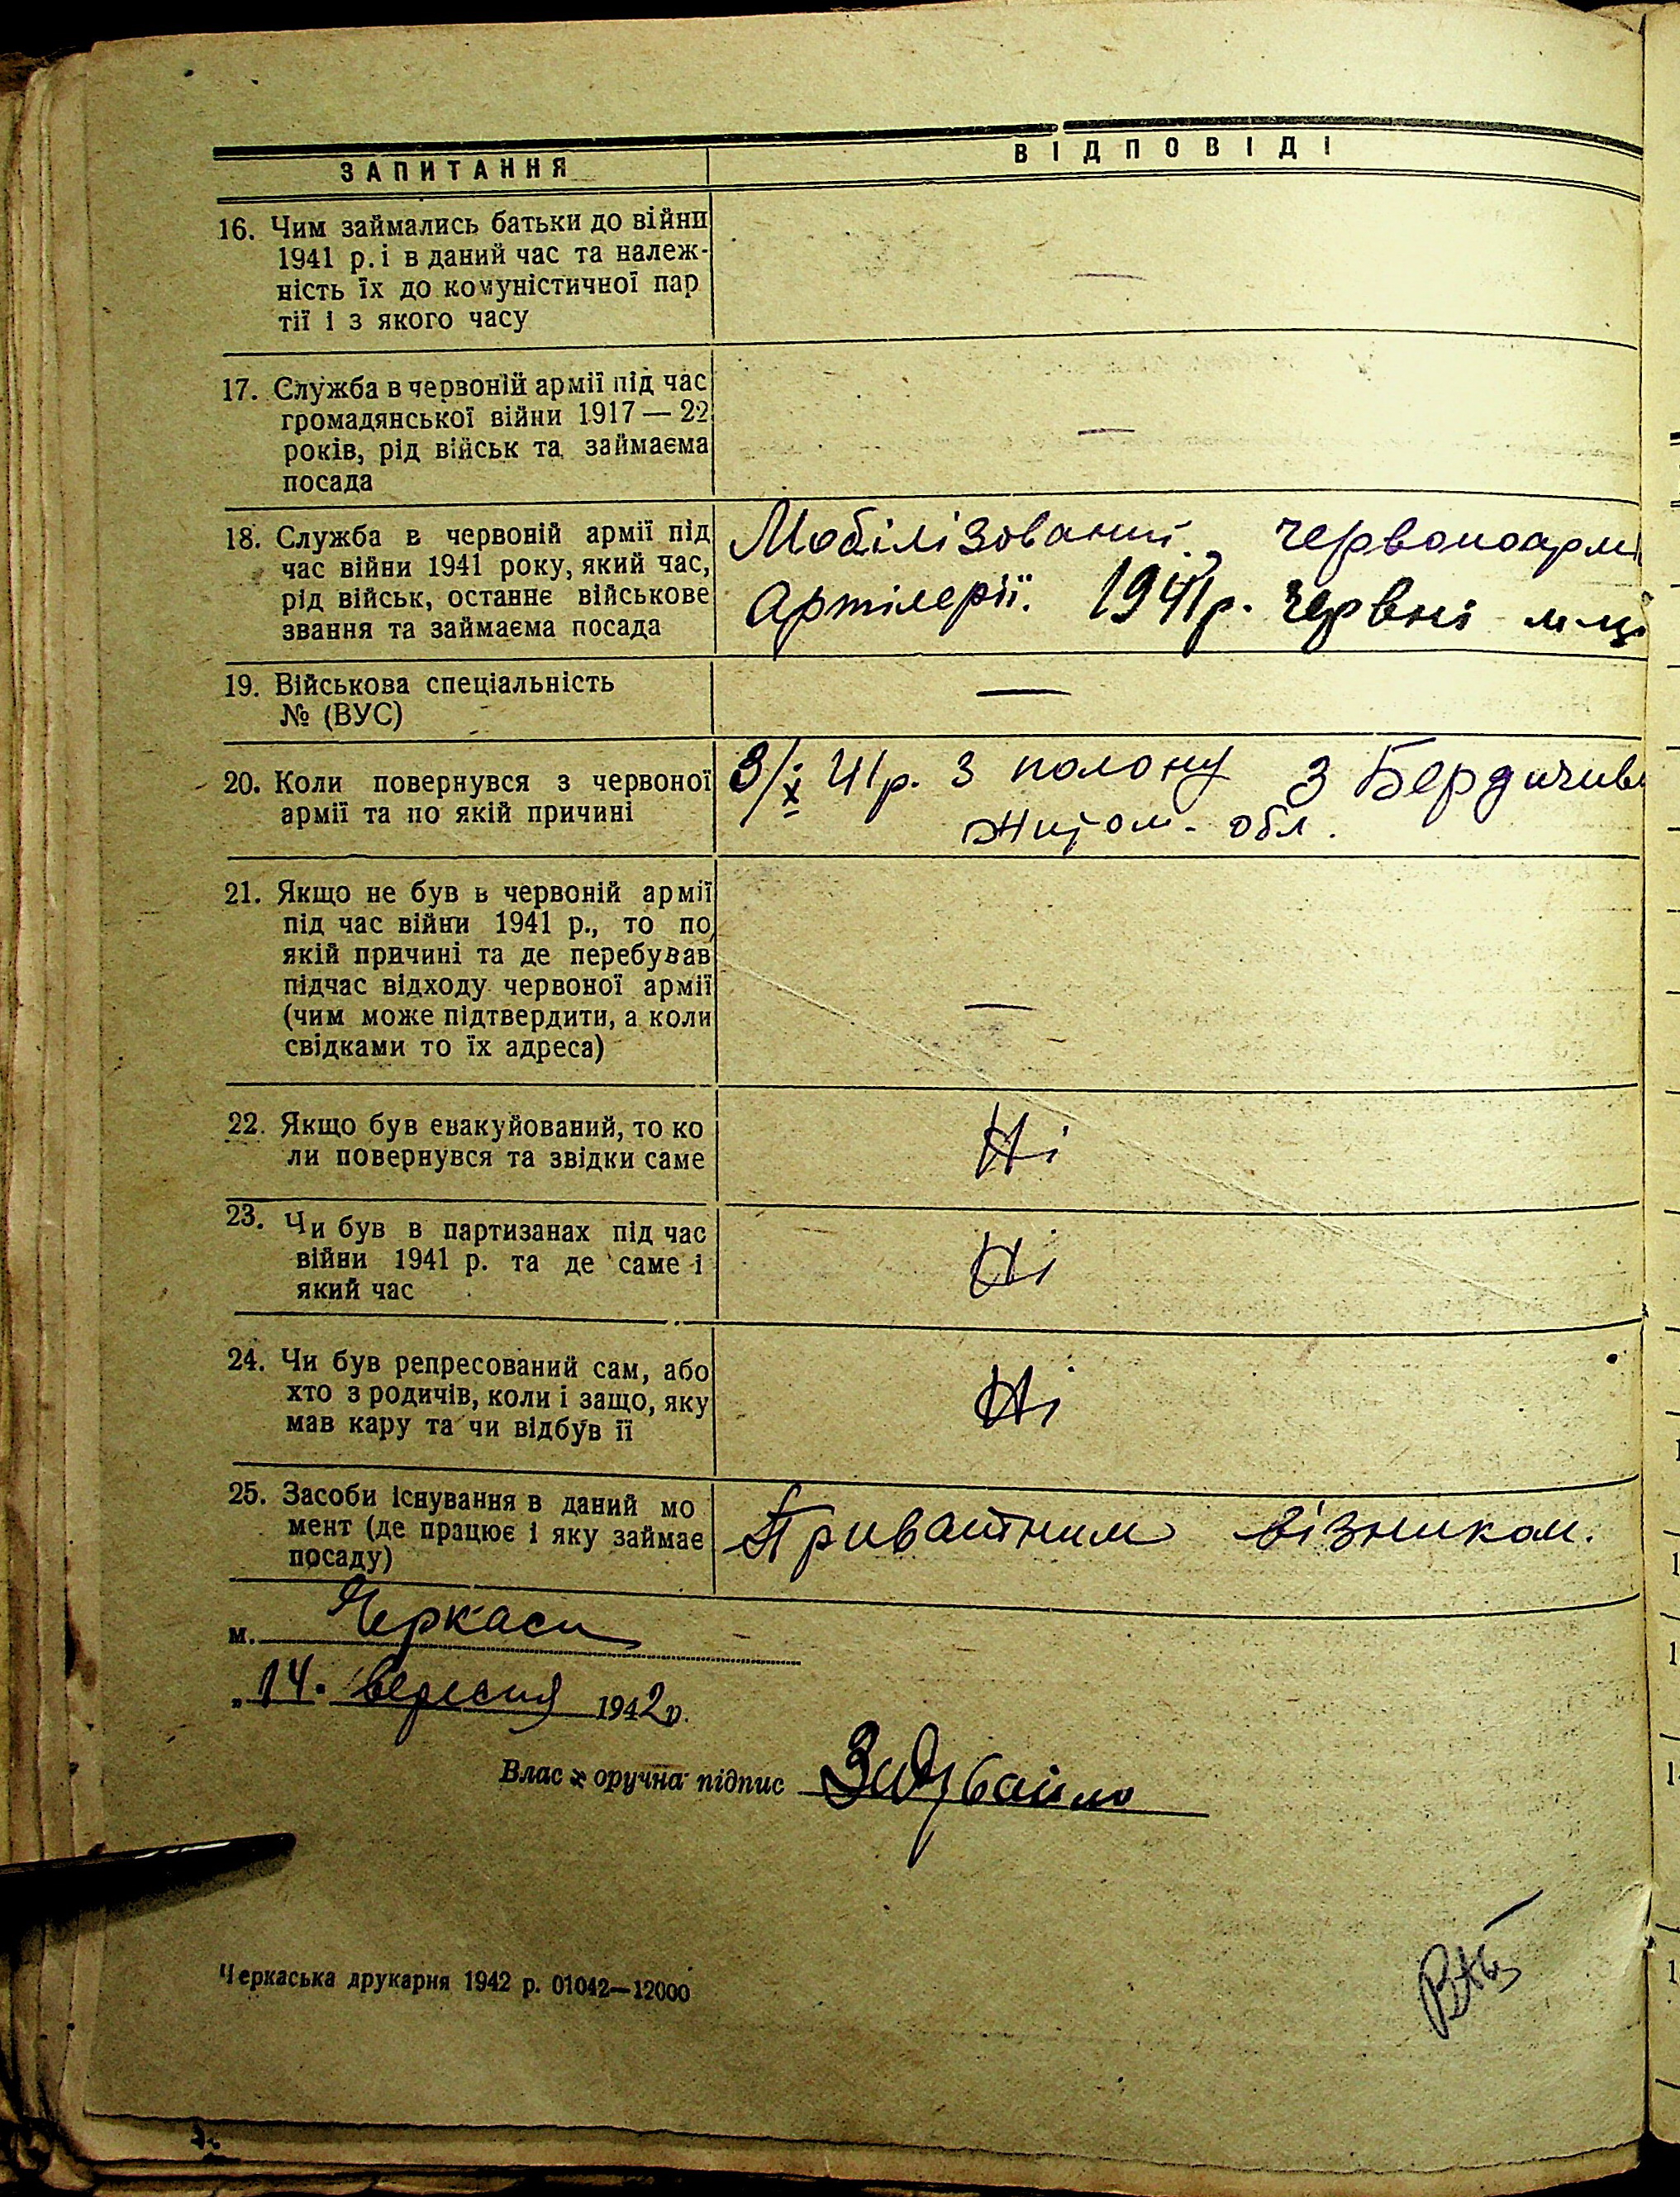 ЗАПИТАННЯ ВІДПОВІДІ
16. Чим займались батьки до війни
1941 р. і в даний час та належ-
ність їх до комуністичної пар
тії і з якого часу
—
17. Служба в червоній армії під час
громадянської війни 1917 — 22
років, рід військ та займаєма
посада
—
18. Служба в червоній армії під
час війни 1941 року, який час,
рід військ, останнє військове
звання та займаєма посада
Мобілізований. червоноармі
Артілерії. 1941 р. червні м-ці
19. Військова спеціальність
№ (ВУС)
—
20. Коли повернувся з червоної
армії та по якій причині
3/X 41 р. З полону З Бердичив
Житом- обл.
21. Якщо не був в червоній армії
під час війни 1941 р., то по
якій причині та де перебував
підчас відходу червоної армії
(чим може підтвердити, а коли
свідками то їх адреса)
—
22. Якщо був евакуйований, то ко
ли повернувся та звідки саме
Ні
23. Чи був в партизанах під час
війни 1941 р. та де саме і
який час
Ні
24. Чи був репресований сам, або
хто з родичів, коли і защо, яку
мав кару та чи відбув її
Ні
25. Засоби існування в даний мо
мент (де працює і яку займає
посаду)
Приватним візником.
м. Черкаси
„14. вересня 1942 р.
Власноручна підпис
Черкаська друкарня 1942 р. 01042—12000